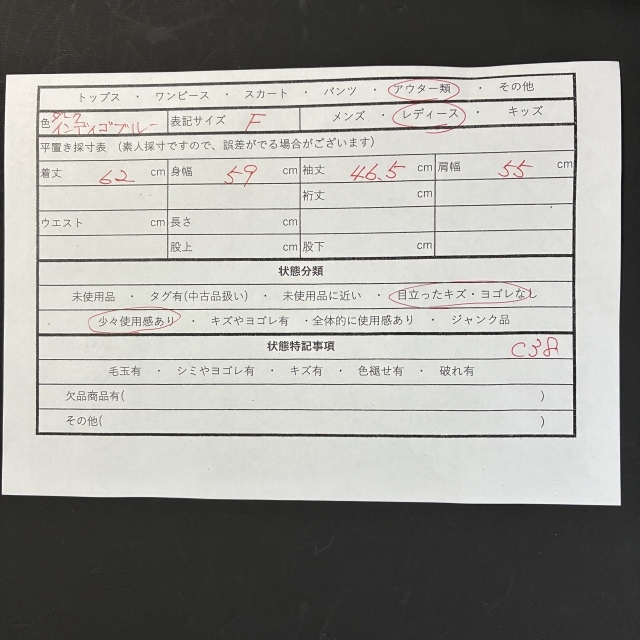 トップス ・ ワンピース ・ スカート ・ パンツ ・ アウター類 ・ その他
色 ダーク インディゴブルー 表記サイズ F メンズ ・ レディース ・ キッズ
平置き採寸表 (素人採寸ですので、誤差がでる場合がございます)
着丈 62 cm 身幅 59 cm 袖丈 46.5 cm 肩幅 55 cm
裄丈 cm
ウエスト cm 長さ cm
股上 cm 股下 cm
状態分類
未使用品 ・ タグ有(中古品扱い) ・ 未使用品に近い ・ 目立ったキズ・ヨゴレなし
少々使用感あり ・ キズやヨゴレ有 ・全体的に使用感あり ・ ジャンク品
状態特記事項 C38
毛玉有 ・ シミやヨゴレ有 ・ キズ有 ・ 色褪せ有 ・ 破れ有
欠品商品有( )
その他( )